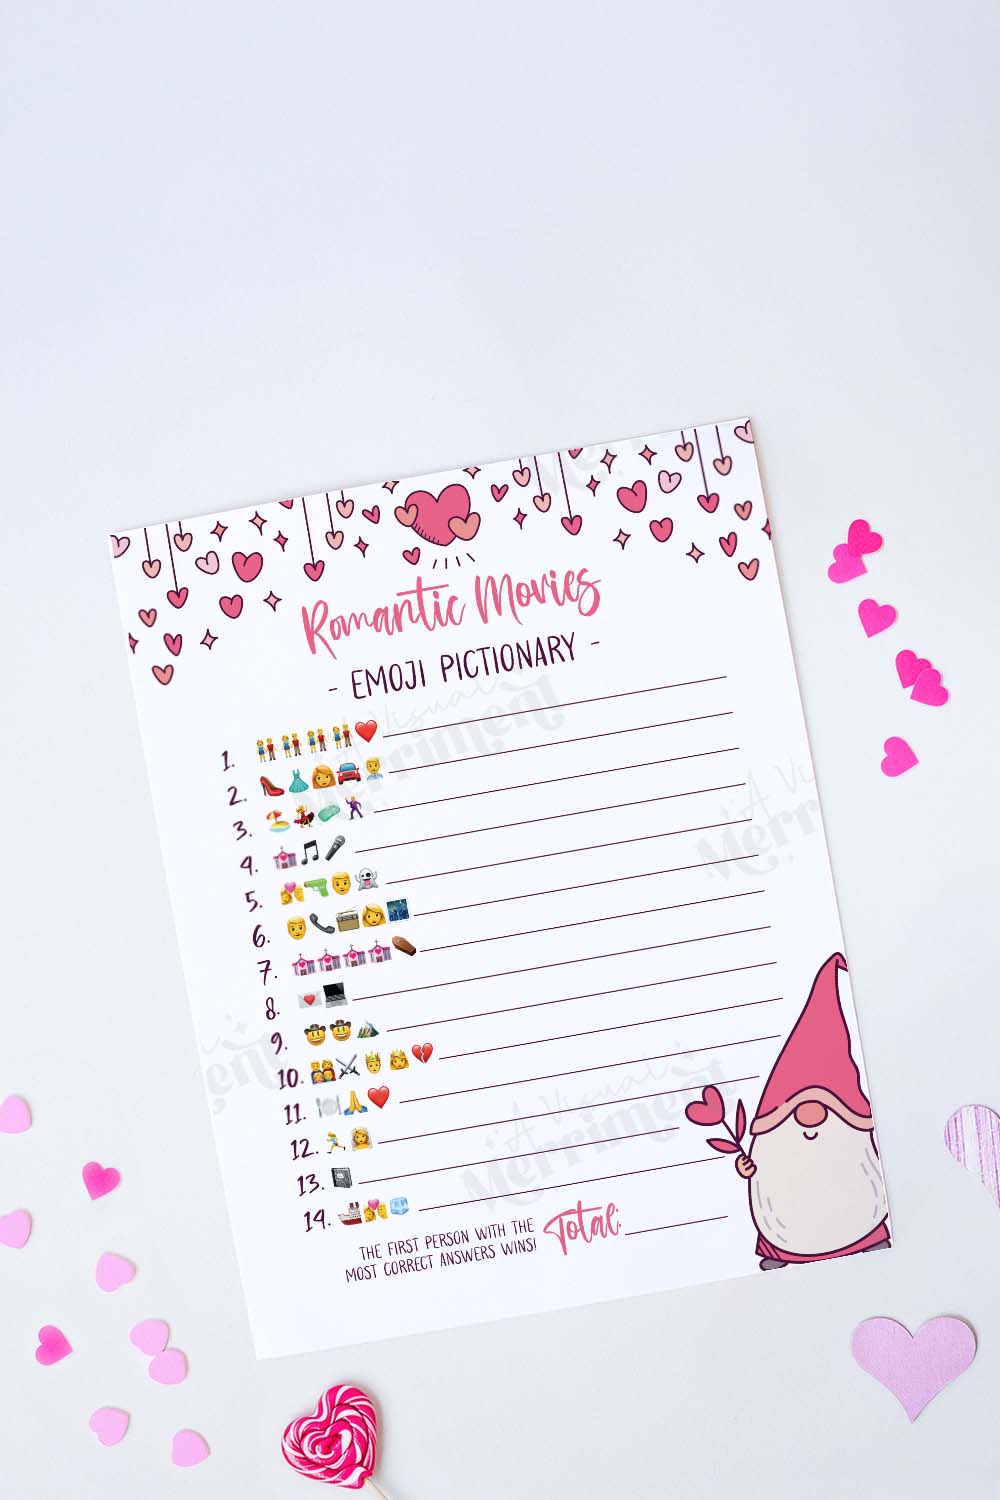 Romantic Movies
- EMOJI PICTIONARY -
A Visual
Merriment
1.
2.
3.
4.
5.
6.
7.
8.
9.
10.
11.
12.
13.
14.
THE FIRST PERSON WITH THE
MOST CORRECT ANSWERS WINS!
Total:
A Visual
Merriment